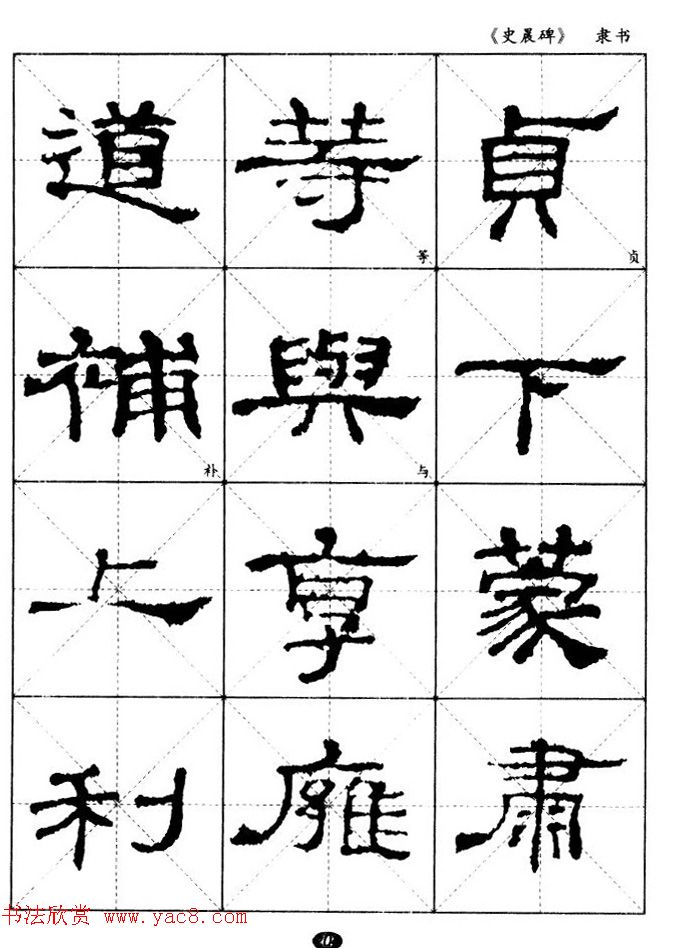 《史晨碑》 隶书
貞 贞
下
蒙
肅
等 等
與 与
享
雍
道
補 补
上
利
书法欣赏 www.yac8.com